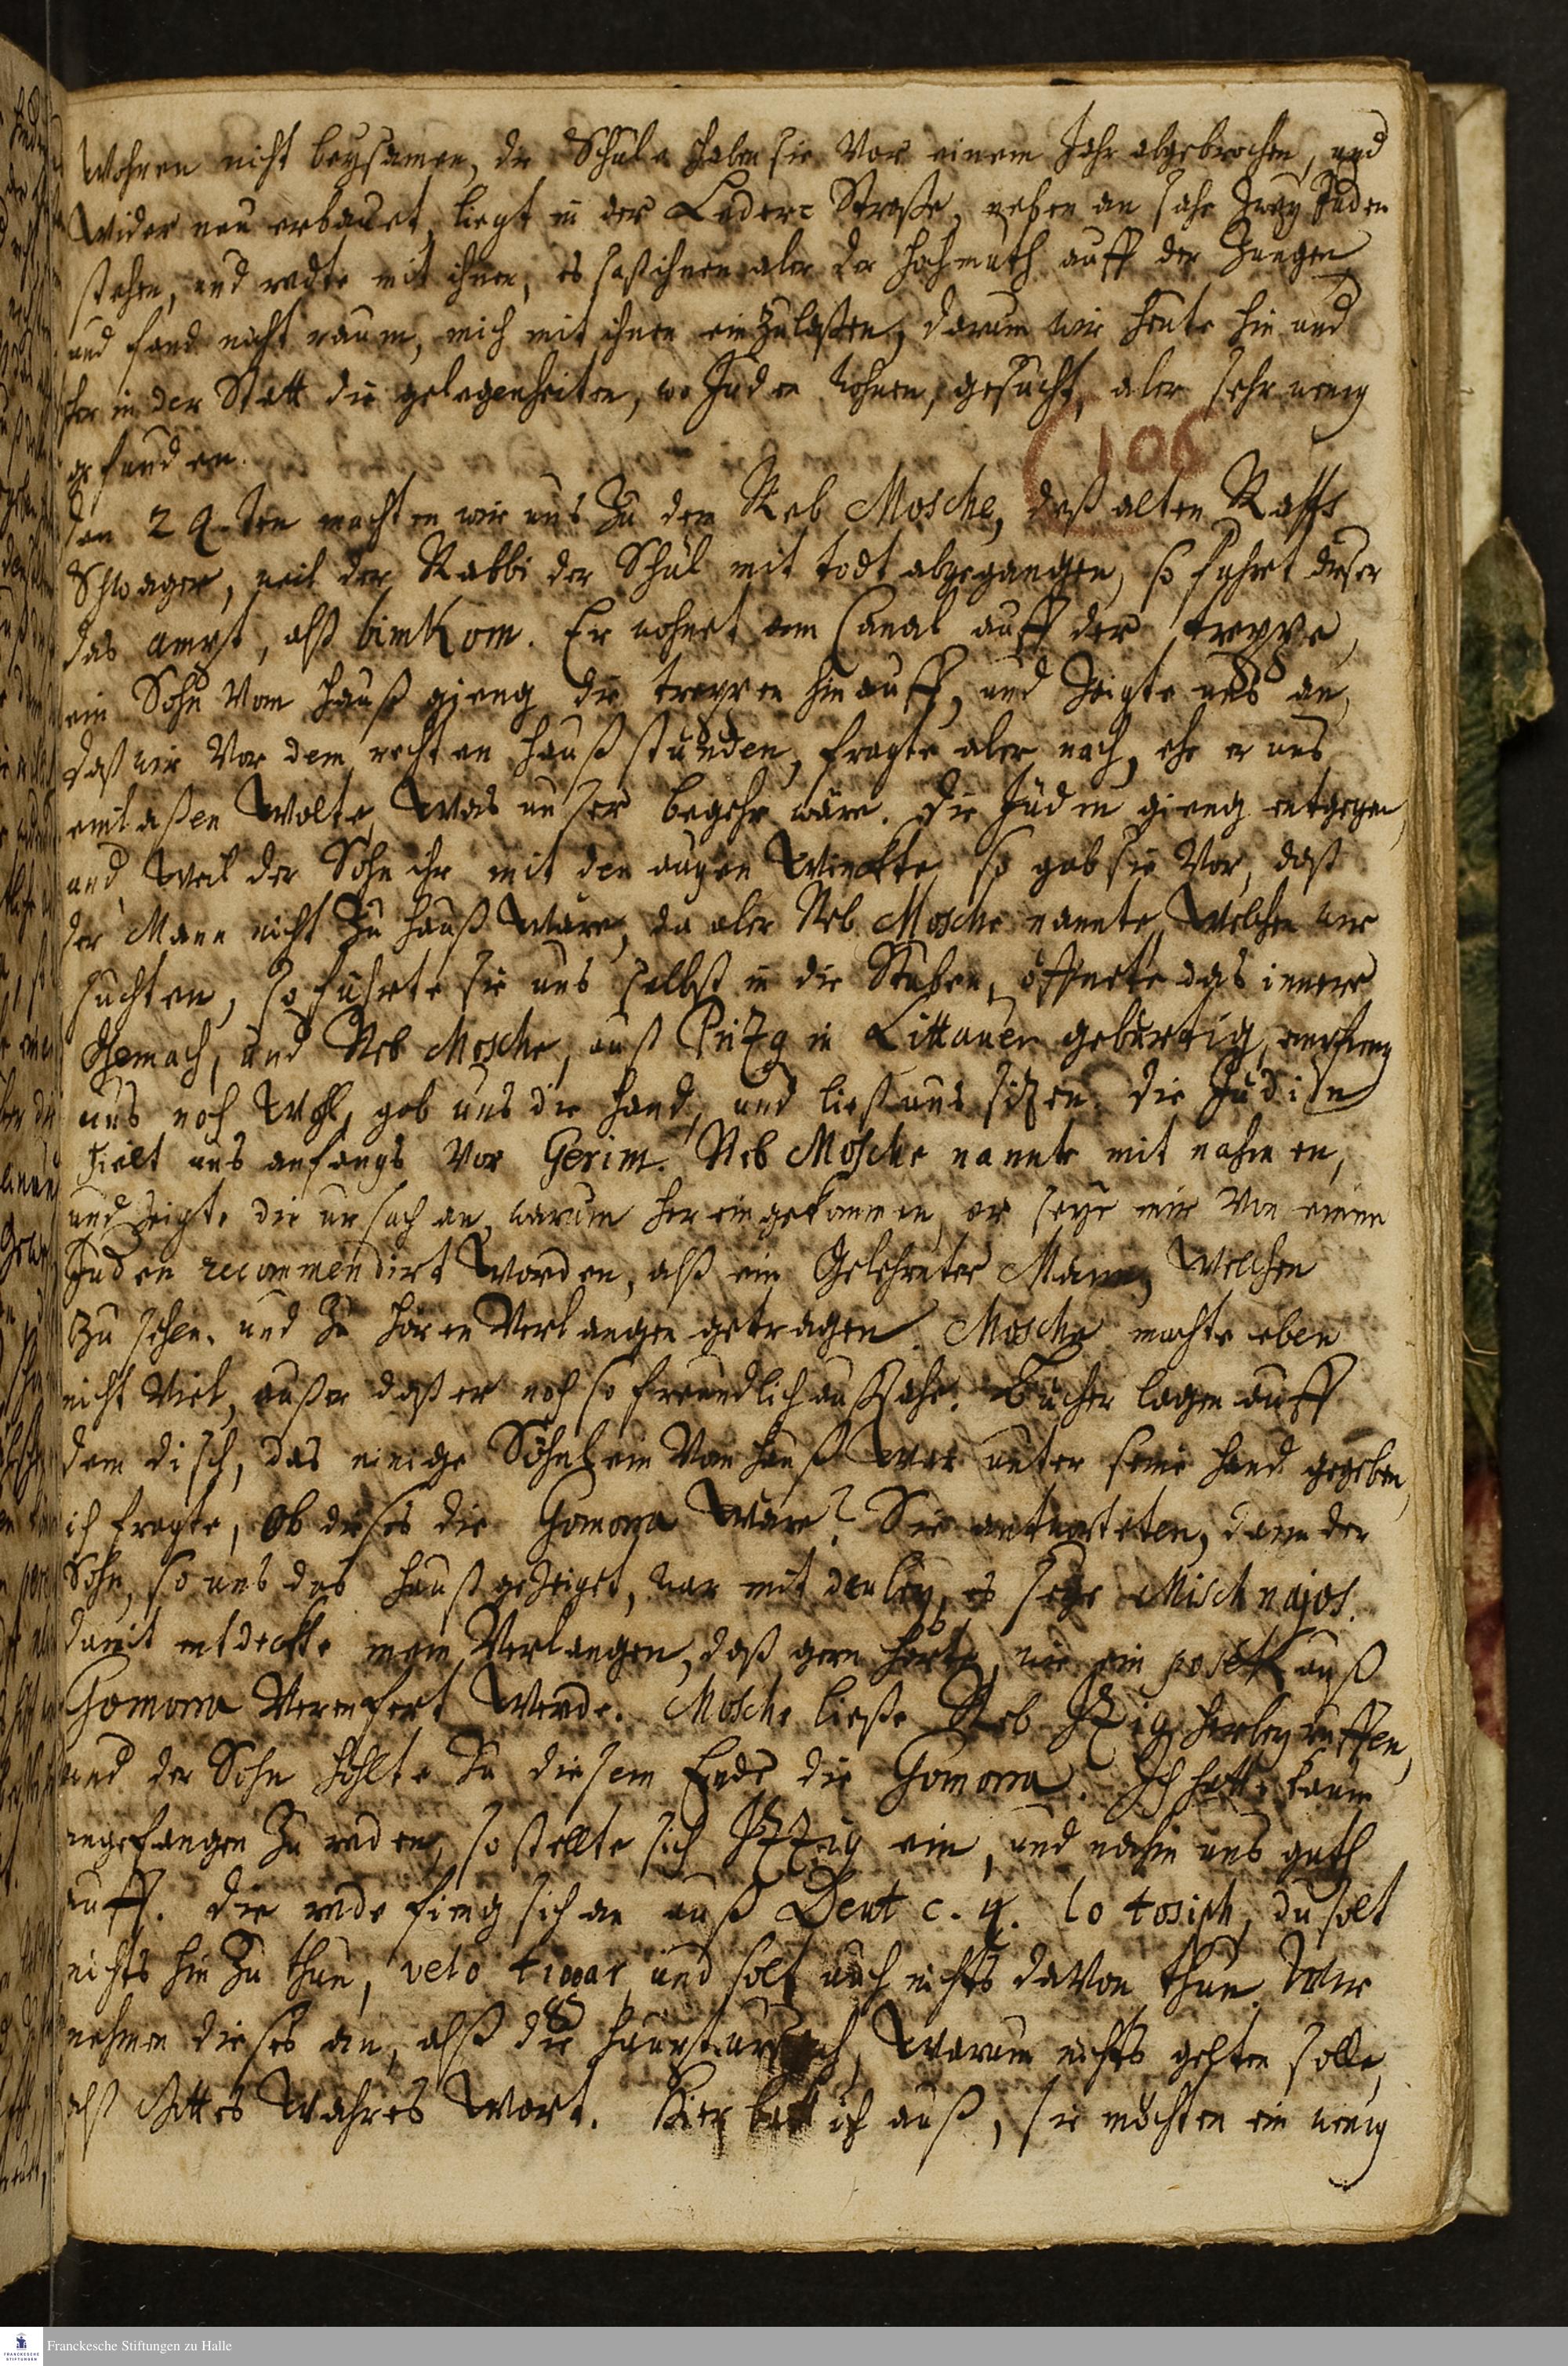 wohnen nicht beysamen, die Schule haben sie vor einem Jahr abgebrochen, und
wider neu erbauet, liegt in der Leder= Straße, neben an sahe zwey Juden
stehen, und redte mit ihnen, es saß ihnen aber der Hohmuth auff der Zungen
und fand nicht raum, mich mit ihnen einzulaßen, darum wir heute hin und
her in der Statt die gelegenheiten, wo Juden wohnen, gesucht, aber sehr wenig
gefunden.
106
den 29.ten machten wir uns zu dem Reb Mosche, deß alten Raffs
Schwager, weil der Rabbi der Schul mit todt abgegangen, so fuhret dieser
das ampt, alß bimkom. Er wohnet am Canal auff der treppe,
ein Sohn vom Hauß gieng die treppen hinauff, und zeigte uns an,
daß wir vor dem rechten Hauß stunden, fragte aber nach, ehe er uns
einlaßen wolte, was unser begehr wäre. die Jüdin gieng entgegen,
und weil der Sohn ihr mit den augen winckte, so gab sie vor, daß
der Mann nicht zu Hauß wäre, da aber Reb Mosche nannte, welchen wir
suchten, so führte sie uns selbst in die Stuben, öffnete das innere
Gemach, und Reb Mosche, auß in Littauen gebürtig, empfieng
uns noch wohl, gab uns die Hand, und ließ uns sitzen. die Jüdin
hielt uns anfangs vor Gerim. Reb Mosche nannte mit nahmen,
und zeigte die ursach an, warum hereingekommen, er seye mir von einem
Juden recommendirt worden, alß ein Gelehrter Mann, welchen
zu sehen, und zu hören verlangen getragen. Mosche machte eben
nicht viel, außer daß er noch so freundlich außsahe. Bücher lagen auff
dem disch, das einige Söhnlein vom Hauß war unter seine Hand gegeben,
ich fragte, ob dieses die Gomorra wäre? Sie antworteten, dann der
Sohn, so uns das Hauß gezeiget, war mit dabey, es seye Mischnajos.
damit entdeckte mein verlangen, daß gern hörte, wie ein posuk auß
Gomorra werde. Mosche ließe Reb Itzig herbey ruffen,
und der Sohn hohlte zu diesem Ende die Gomorra. Ich hatte kaum
angefangen zu reden, so stellte sich Itzig ein, und nahm uns guth
auff. die rede fieng sich an auß Deut c. 4. lo tosiph, du solt
nichts hin zu thun, velo und solt auch nichts davon thun. Wir
nehmen dieses an, alß die hauptursach, warum nichts gelten solle,
alß Gottes wahres wort. Hier batt ich auß, sie möchten ein wenig
Franckesche Stiftungen zu Halle